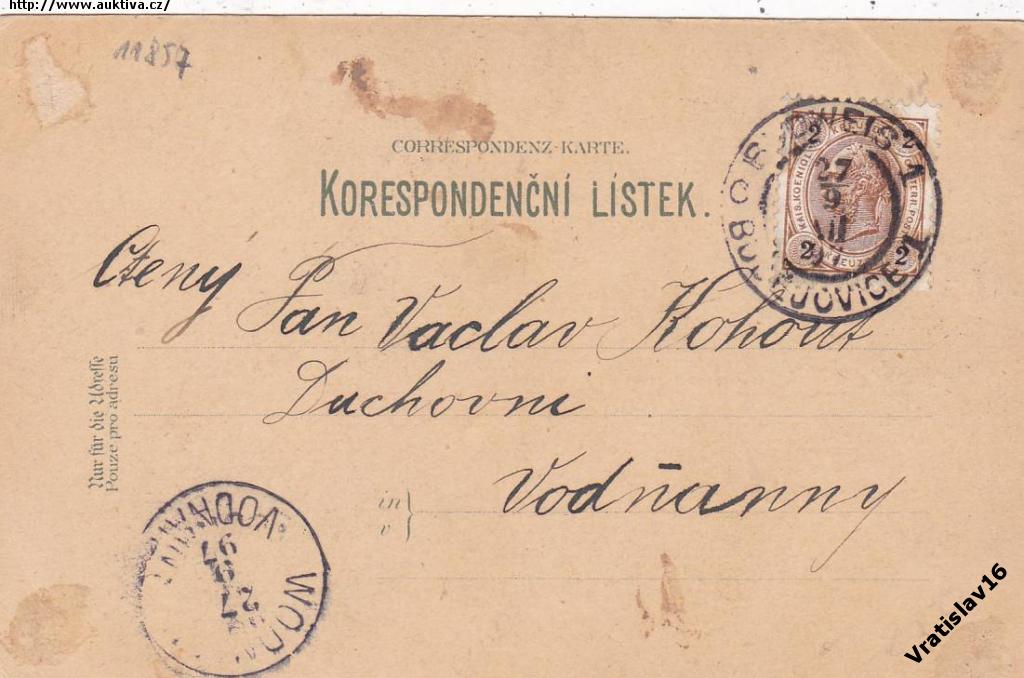 http://www.auktiva.cz/
11857
CORRESPONDENZ-KARTE.
KORESPONDENČNÍ LÍSTEK.
BUDWEIS 1
27
9
BUDĚJOVICE 1
2 KREUZER 2
KAIS. KOENIGL. OESTERR. POST
Ctený Pan Vaclav Kohout
Duchovni
Vodňanny
in
v
Nur für die Adresse
Pouze pro adresu
WODN
27
9
97
VODŇANY
Vratislav16